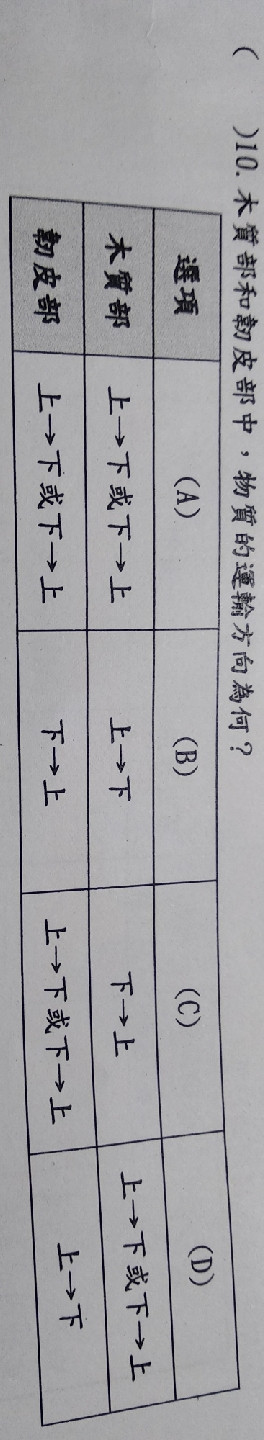 (　　)10. 木質部和韌皮部中，物質的運輸方向為何？
選項 (A) (B) (C) (D)
木質部 上→下或下→上 上→下 下→上 上→下或下→上
韌皮部 上→下或下→上 下→上 上→下或下→上 上→下